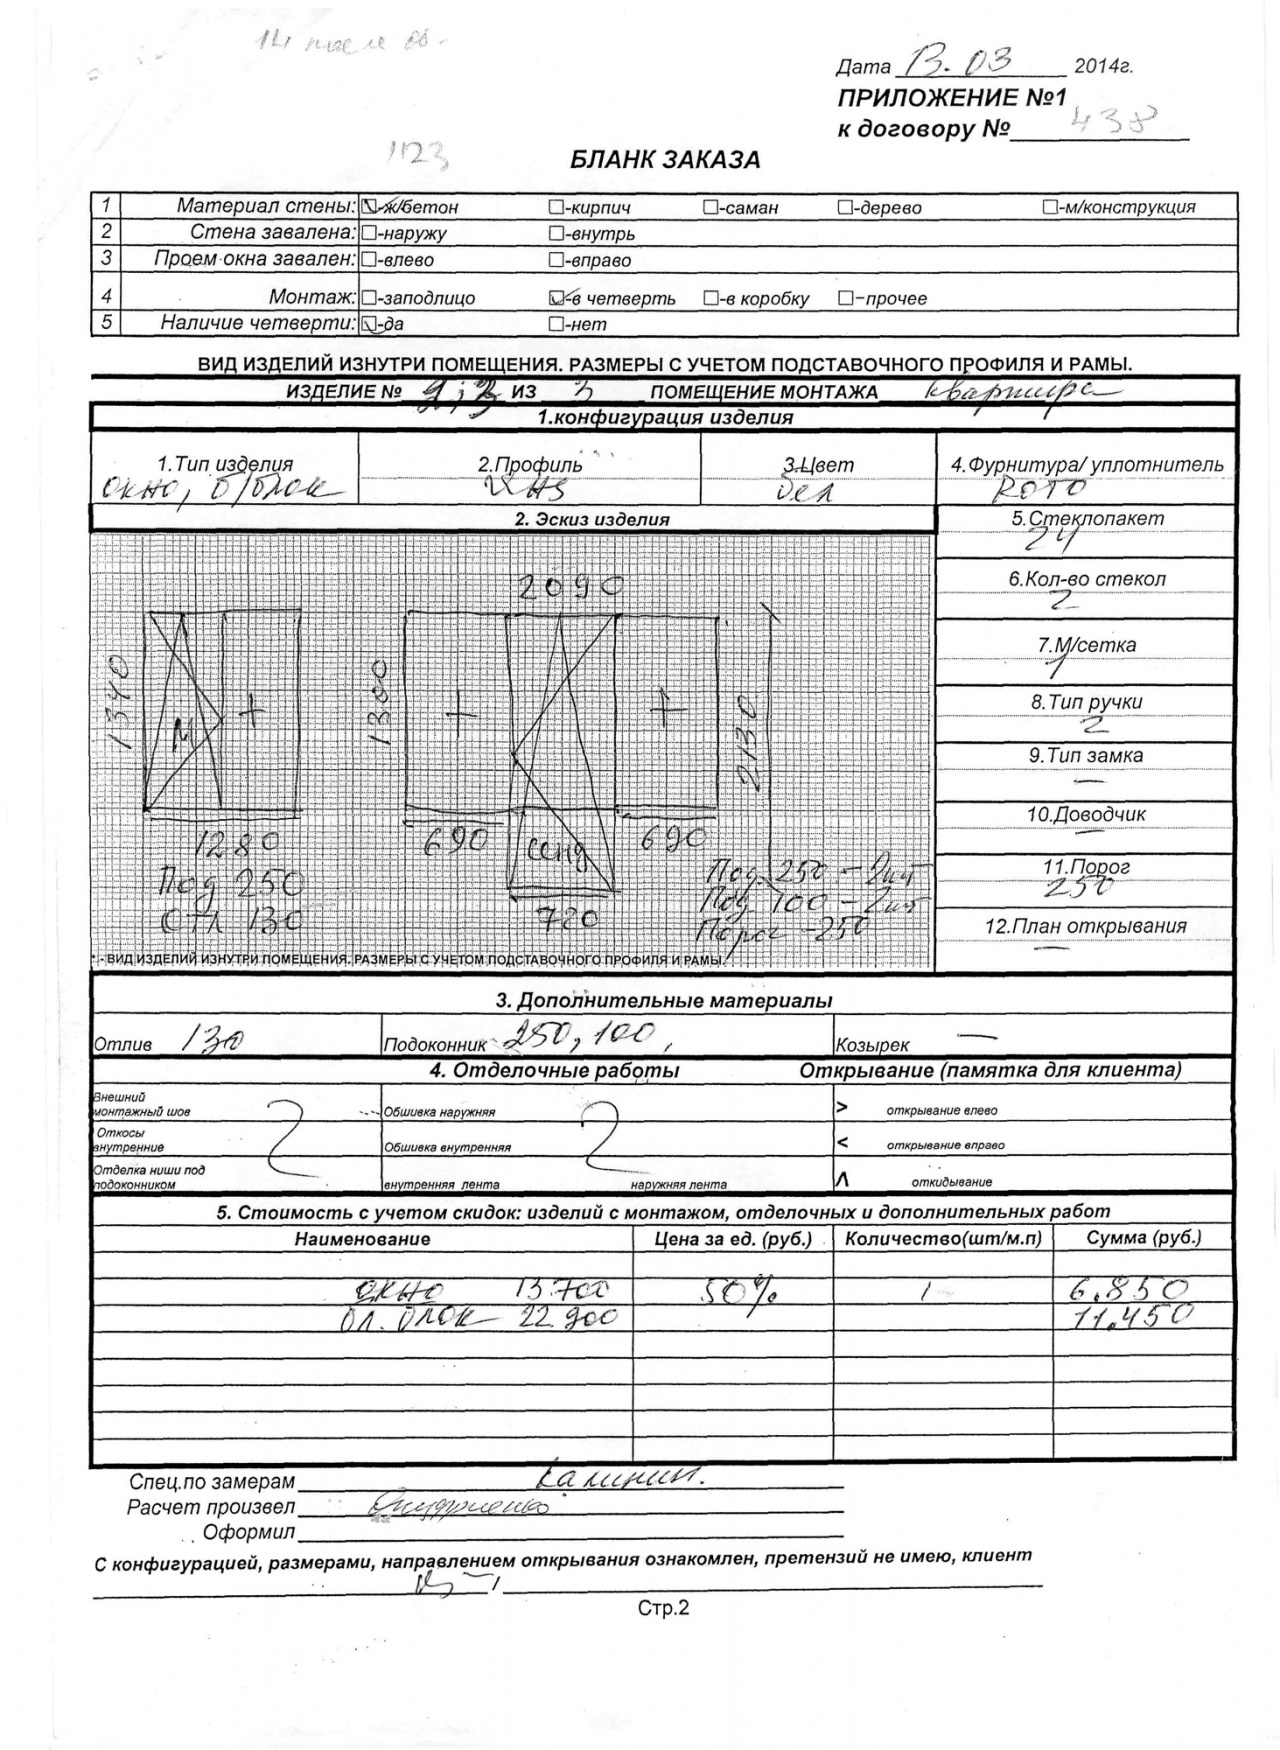 14 после
Дата 13.03 2014г.
ПРИЛОЖЕНИЕ №1
к договору № 438
1123
БЛАНК ЗАКАЗА
1 Материал стены: -ж/бетон -кирпич -саман -дерево -м/конструкция
2 Стена завалена: -наружу -внутрь
3 Проем окна завален: -влево -вправо
4 Монтаж: -заподлицо -в четверть -в коробку -прочее
5 Наличие четверти: -да -нет
ВИД ИЗДЕЛИЙ ИЗНУТРИ ПОМЕЩЕНИЯ. РАЗМЕРЫ С УЧЕТОМ ПОДСТАВОЧНОГО ПРОФИЛЯ И РАМЫ.
ИЗДЕЛИЕ № 2;3 ИЗ 3 ПОМЕЩЕНИЕ МОНТАЖА квартира
1.конфигурация изделия
1.Тип изделия 2.Профиль 3.Цвет 4.Фурнитура/ уплотнитель
окно, б/блок бел ROTO
2. Эскиз изделия
5.Стеклопакет
24
6.Кол-во стекол
2
7.М/сетка
1
8.Тип ручки
2
9.Тип замка
—
10.Доводчик
—
11.Порог
250
12.План открывания
—
2090
1340 М + 1300 + + 2130
1280 690 сенд 690
Под 250 Под. 250 - 2шт
Отл 130 720 Под 100 - 2шт
Порог -250
* - ВИД ИЗДЕЛИЙ ИЗНУТРИ ПОМЕЩЕНИЯ. РАЗМЕРЫ С УЧЕТОМ ПОДСТАВОЧНОГО ПРОФИЛЯ И РАМЫ.
3. Дополнительные материалы
Отлив 130 Подоконник 250, 100, Козырек —
4. Отделочные работы Открывание (памятка для клиента)
Внешний
монтажный шов Обшивка наружняя > открывание влево
Откосы
внутренние Обшивка внутренняя < открывание вправо
Отделка ниши под
подоконником внутренняя лента наружняя лента Λ откидывание
5. Стоимость с учетом скидок: изделий с монтажом, отделочных и дополнительных работ
Наименование Цена за ед. (руб.) Количество(шт/м.п) Сумма (руб.)
окно 13.700 50% 1 6.850
бл. блок 22.900 11.450
Спец.по замерам Калинин.
Расчет произвел
Оформил
С конфигурацией, размерами, направлением открывания ознакомлен, претензий не имею, клиент
Стр.2